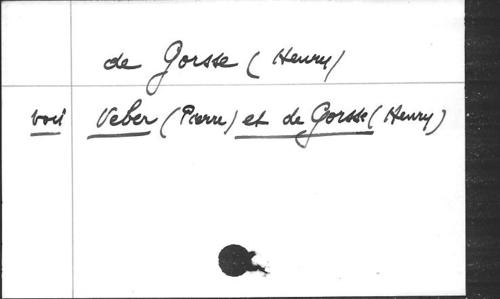 de Gorsse (Henry)
voir Veber (Pierre) et de Gorsse (Henry)